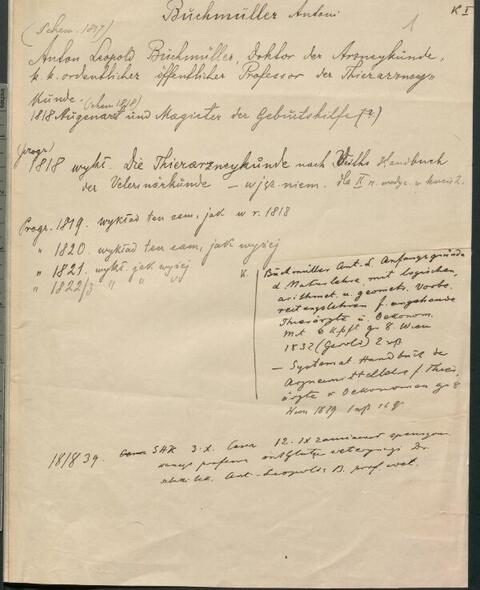 Buchmüller Antoni
K I
1
(Schem. 1817)
Anton Leopold Buchmüller, Doktor der Arzneykunde,
k. k. ordentlicher öffentlicher Professor der Thierarzney=
Kunde. (schem 1818)
1818 Augenarzt und Magister der Geburtshilfe (?)
(progr)
1818 wykł. Die Thierarzneykunde nach Handbuch
der Veterinärkunde — w jęz. niem. dla II r. medyc.
Progr. 1819. wykład ten sam, jak w r. 1818
" 1820. wykład ten sam, jak wyżej
" 1821. wykł. jak wyżej
" 1822/3 " " "
K. Buchmüller Ant. d. Anfangsgründe
d. Naturlehre mit logischen,
arithmet. u. geomet. Vorbe
reitungslehren f. angehende
Thierärzte u. Oekonom.
Mit 6 Kpft gr 8. Wien
1832 (Gerold)
— Systemat Handbuch der
Arzneimittellehre f Thier
ärzte u Oekonomen gr 8
Wien 1819
1818 39. 3. X. 12. IX
Dr
Ant. Leopold B. prof. wet.